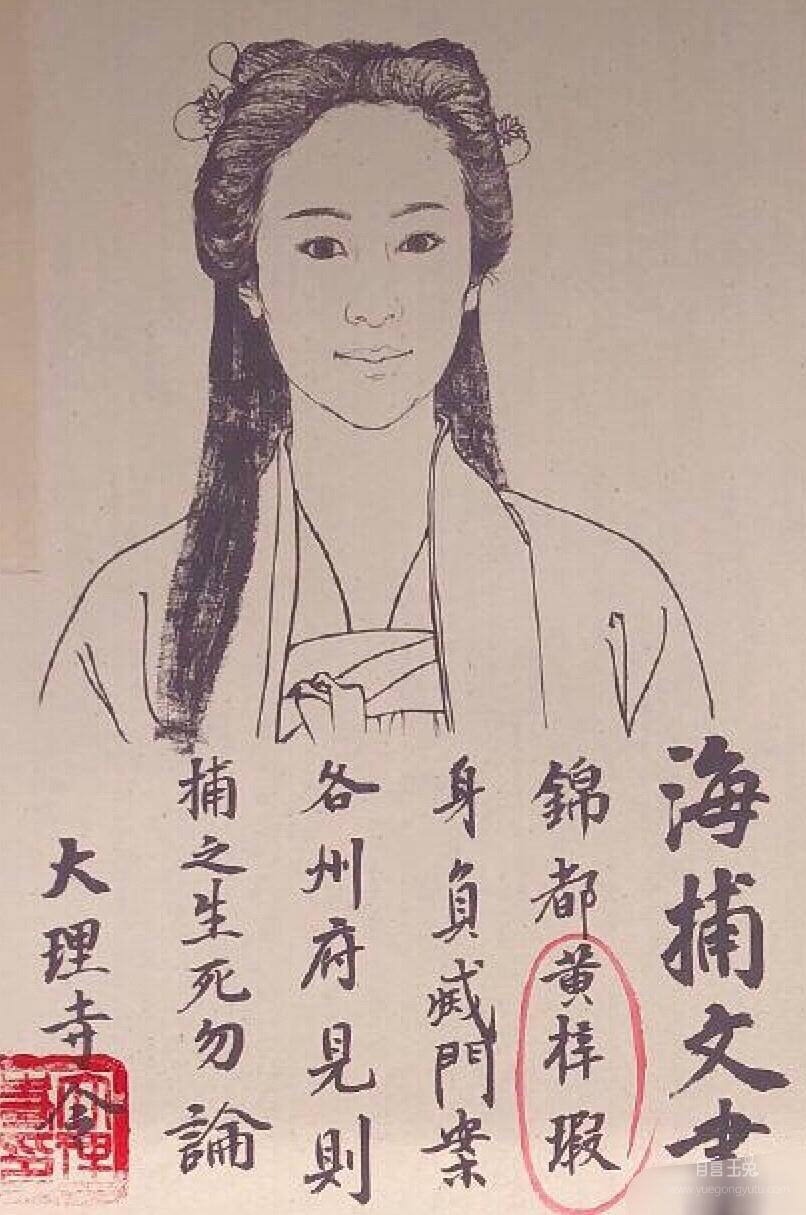 海捕文书
錦都黄梓瑕
身負滅門案
各州府見則
捕之生死勿論
大理寺令
www.yuegongyutu.com